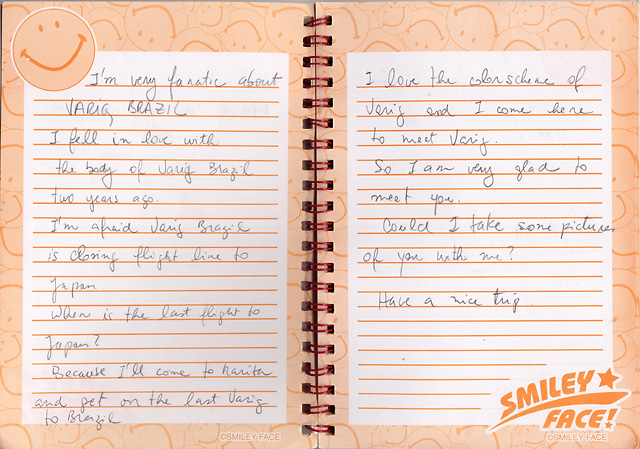 I'm very fanatic about
VARIG BRAZIL
I fell in love with
the body of Varig Brazil
two years ago.
I'm afraid Varig Brazil
is closing flight line to
Japan.
When is the last flight to
Japan?
Because I'll come to Narita
and get on the last Varig
to Brazil
©SMILEY FACE
I love the color scheme of
Varig and I come here
to meet Varig.
So I am very glad to
meet you.
Could I take some pictures
of you with me?
Have a nice trip.
SMILEY
FACE!
©SMILEY FACE